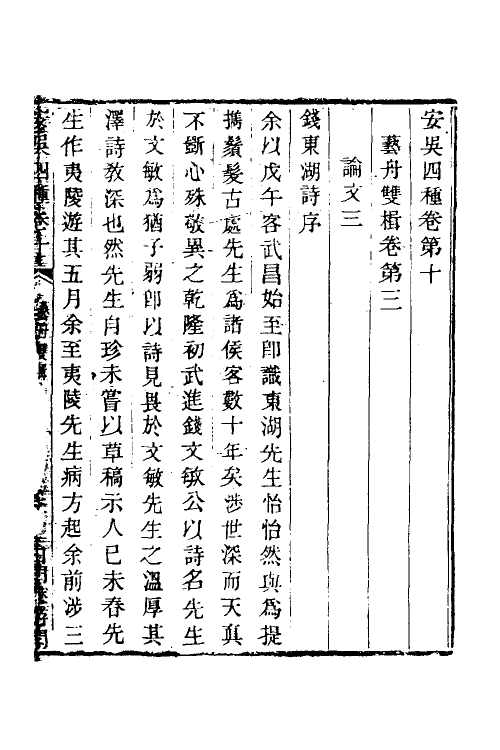 安吳四種卷第十
藝舟雙楫卷第三
論文三
錢東湖詩序
余以戊午客武昌始至即識東湖先生怡怡然與為提
攜鬚髮古處先生為諸侯客數十年矣涉世深而天真
不斲心殊敬異之乾隆初武進錢文敏公以詩名先生
於文敏為猶子弱即以詩見畏於文敏先生之溫厚其
澤詩教深也然先生自珍未嘗以草稿示人已未春先
生作夷陵遊其五月余至夷陵先生病方起余前涉三